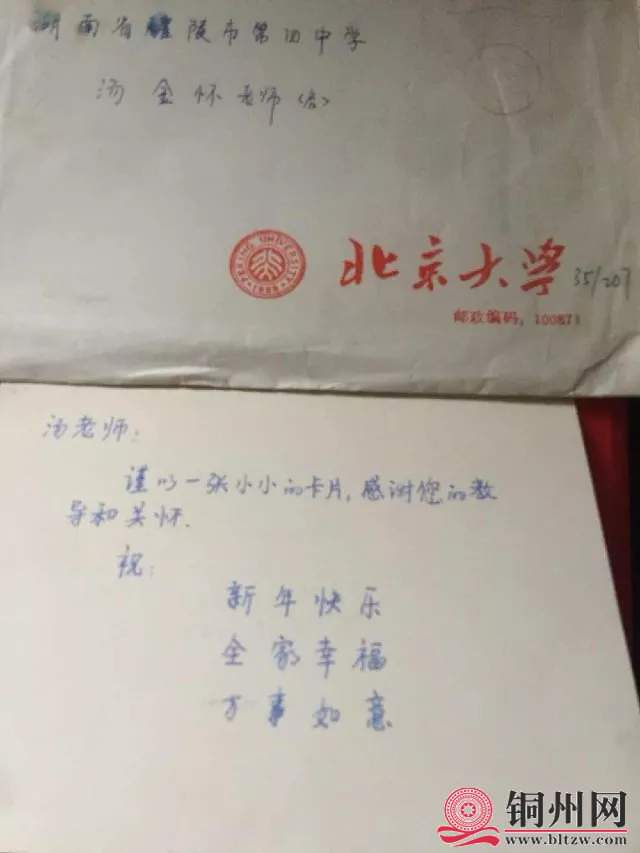 湖南省醴陵市第四中学
汤金怀老师<收>
PEKING UNIVERSITY
1898
北京大学 35/207
邮政编码:100871
汤老师:
谨以一张小小的卡片,感谢您的教
导和关怀.
祝:
新年快乐
全家幸福
万事如意
铜州网
www.bltzw.com